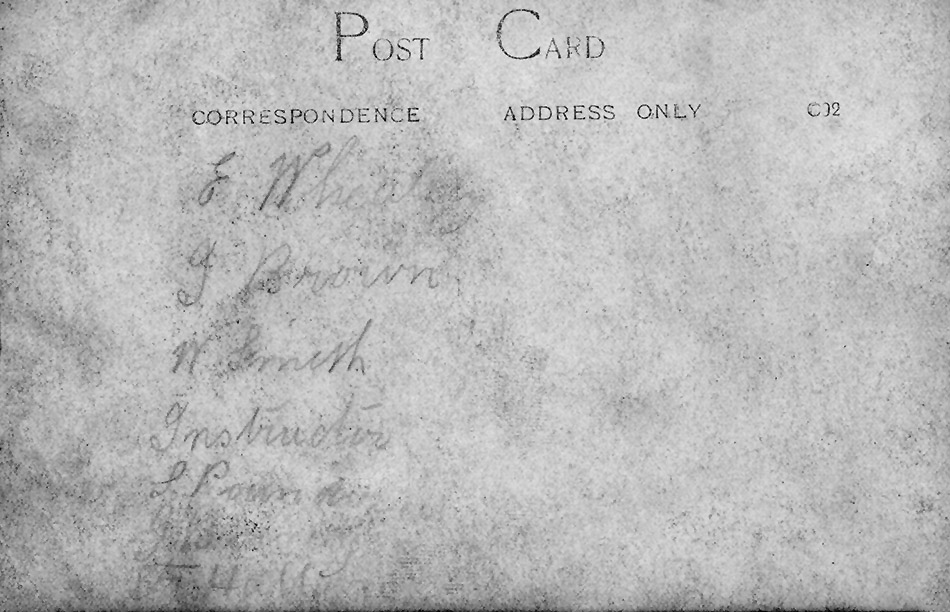 POST CARD
CORRESPONDENCE ADDRESS ONLY C02
E. Wheatley
J Brown
W Smith
Instructor